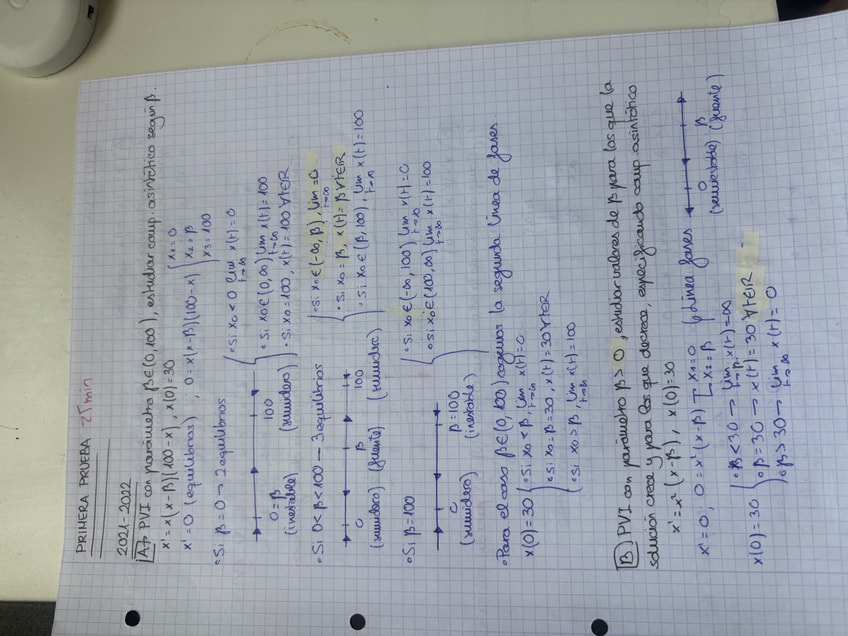 PRIMERA PRUEBA 25 min
2021-2022
A7 PVI con parámetro β∈(0,100), estudiar comp. asintótico según β.
x'=x(x-β)(100-x), x(0)=30
x'=0 (equilibrios), 0=x(x-β)(100-x) { x₁=0
x₂=β
x₃=100
• Si β=0 → 2 equilibrios
0=β 100
(inestable) (sumidero)
{ • Si x₀<0 lim x(t)=0
t→∞
• Si x₀∈(0,∞) lim x(t)=100
t→∞
• Si x₀=100, x(t)=100 ∀t∈ℝ
• Si 0<β<100 → 3 equilibrios
0 β 100
(sumidero) (fuente) (sumidero)
{ • Si x₀∈(-∞,β), lim =0
t→∞
• Si x₀=β, x(t)=β ∀t∈ℝ
• Si x₀∈(β,100), lim x(t)=100
t→∞
• Si β=100
0 β=100
(sumidero) (inestable)
{ • Si x₀∈(-∞,100) lim x(t)=0
t→∞
• Si x₀∈(100,∞) lim x(t)=100
t→∞
• Para el caso β∈(0,100) cogemos la segunda línea de fases
x(0)=30 { • Si x₀<β, lim x(t)=0
t→∞
• Si x₀=β=30, x(t)=30 ∀t∈ℝ
• Si x₀>β, lim x(t)=100
t→∞
B) PVI con parámetro β>0, estudiar valores de β para los que la
solución crece y para los que decrece, especificando comp asintótico
x'=x²(x-β), x(0)=30
x'=0; 0=x²(x-β) [ x₁=0
x₂=β
Línea fases
0 β
(semiestable) (fuente)
x(0)=30 { • β<30 → lim x(t)=∞
• β=30 → x(t)=30 ∀t∈ℝ
• β>30 → lim x(t)=0
t→∞